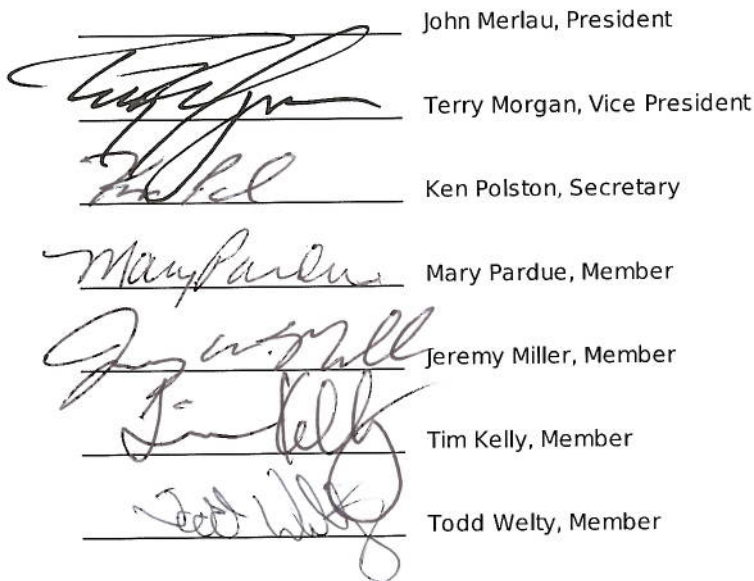 John Merlau, President
Terry Morgan, Vice President
Ken Polston, Secretary
Mary Pardue Mary Pardue, Member
Jeremy Miller, Member
Tim Kelly Tim Kelly, Member
Todd Welty Todd Welty, Member